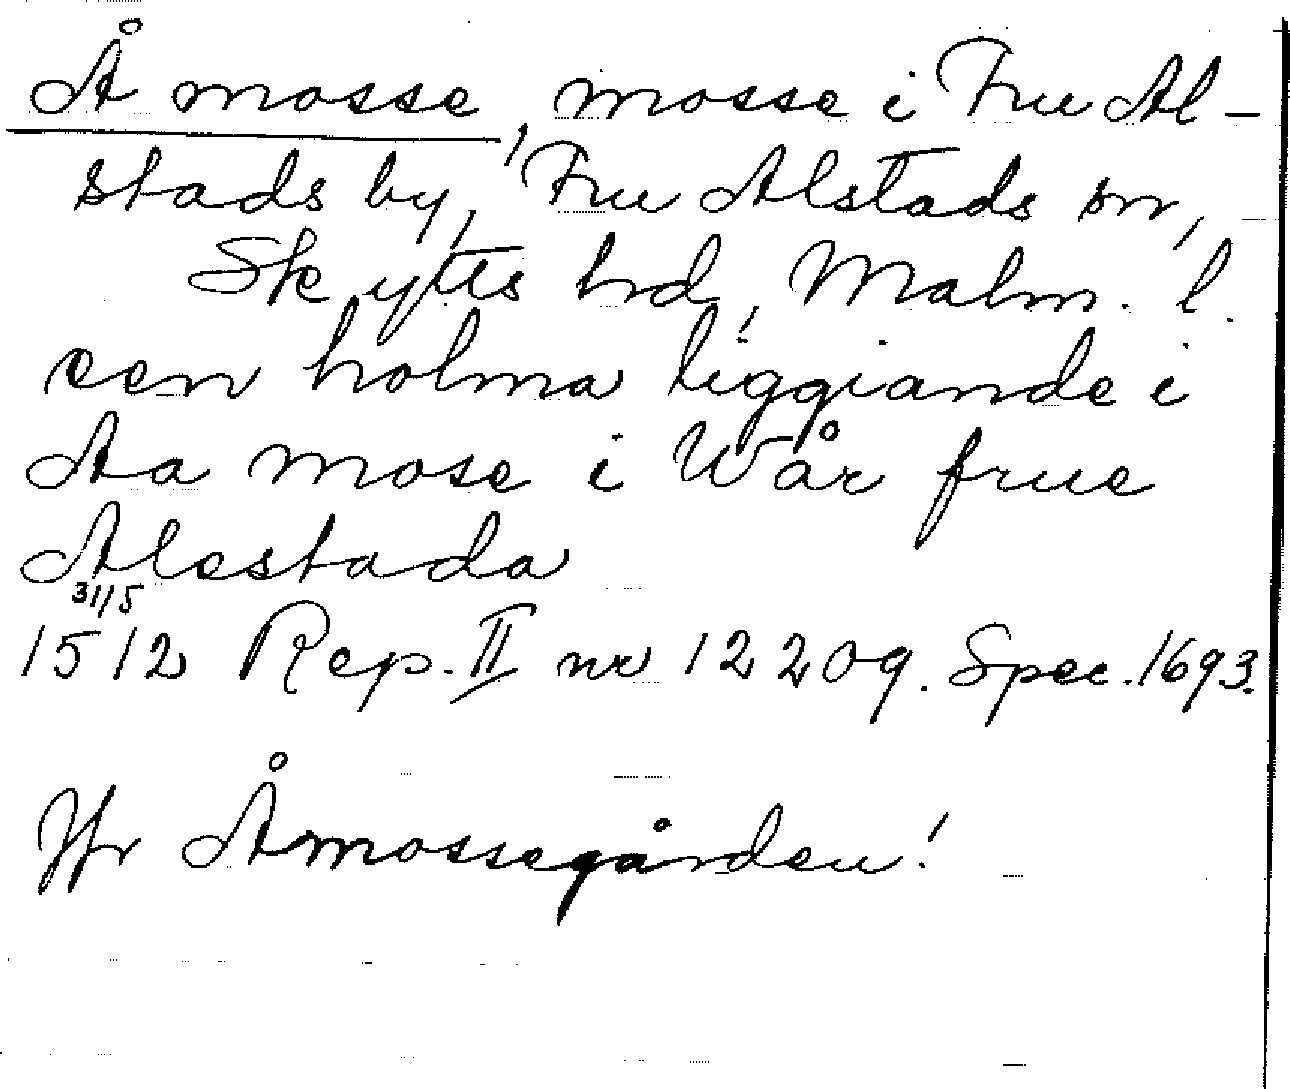 Å mosse, mosse i Fru Al-
stads by, Fru Alstads sn,
Skytts hd, Malm. l.
een holma liggiande i
Aa mose i Wår frue
Alestada
31/5
1512 Rep. II nr 12209. Spec. 1693.
Jfr Åmossegården!